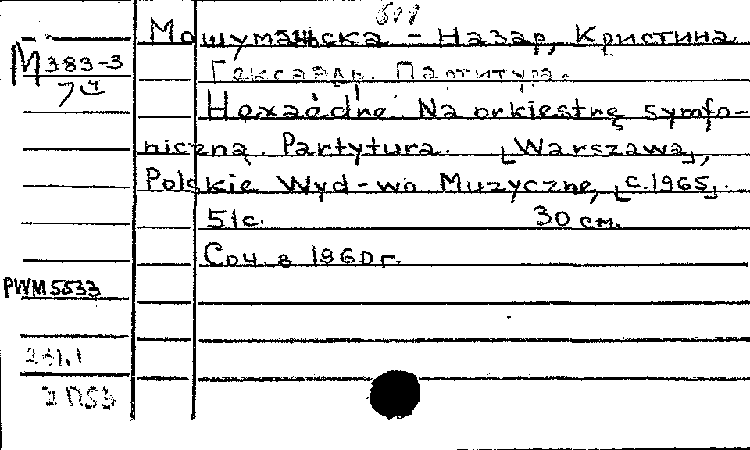 600
Мошумańska - Назар, Кристина
М 383-3
74
Гексаэдр. Партитура.
Hexaèdre. Na orkiestrę symfo-
niczną. Partytura. [Warszawa],
Polskie Wyd-wo Muzyczne, [c.1965].
51с. 30 см.
Соч. в 1960г.
PWM 5533
231.1